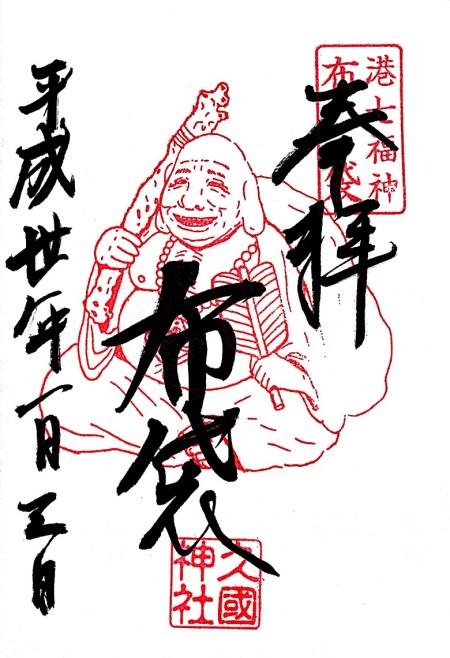 港七福神
布袋
奉拝
布袋
久國
神社
平成丗年一月三日